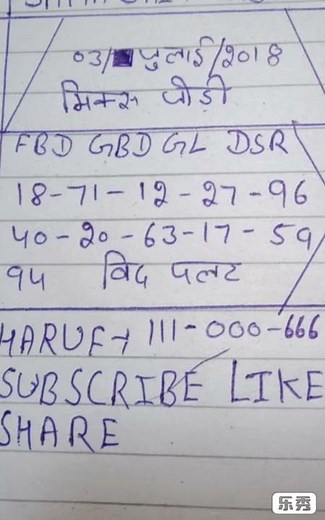 03/ जुलाई/2018
मिक्स जोड़ी
FBD GBD GL DSR
18-71-12-27-96
40-20-63-17-59
94 विद पलट
HARUF→ 111-000-666
SUBSCRIBE LIKE
SHARE
乐秀